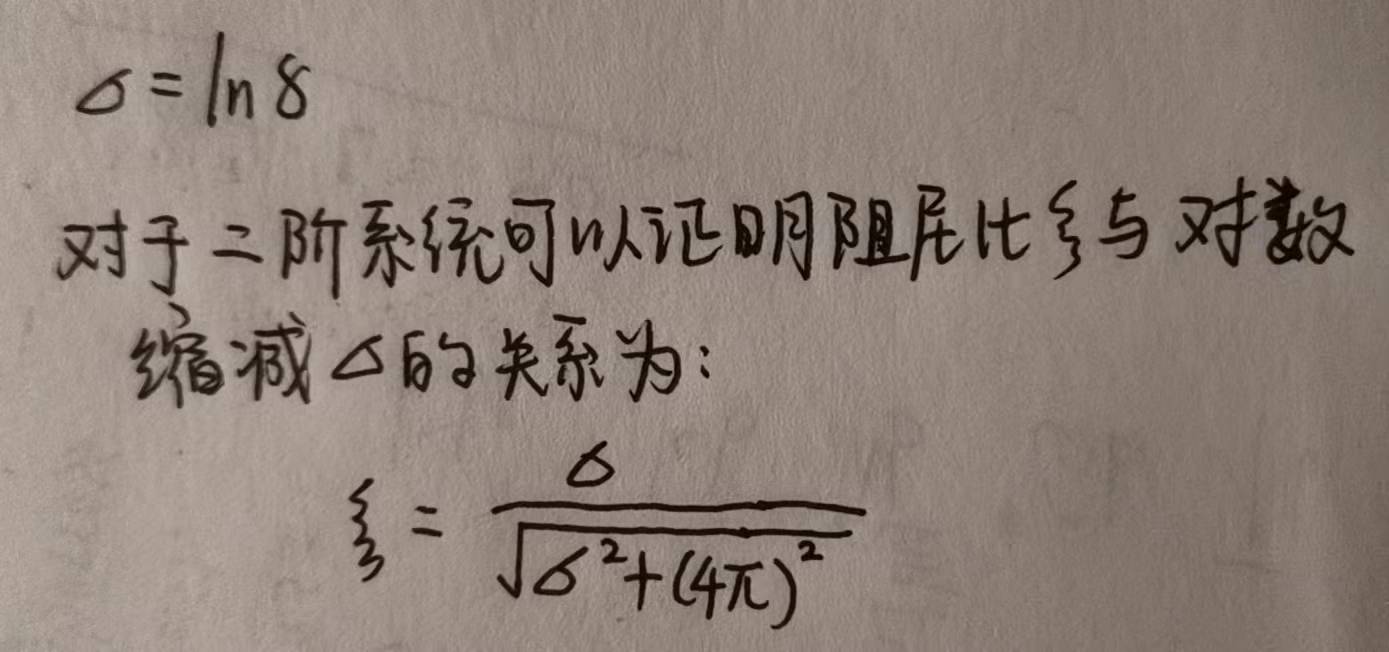 δ = ln 8
对于二阶系统可以证明阻尼比ξ与对数
缩减δ的关系为：
ξ = δ / √(δ² + (4π)²)